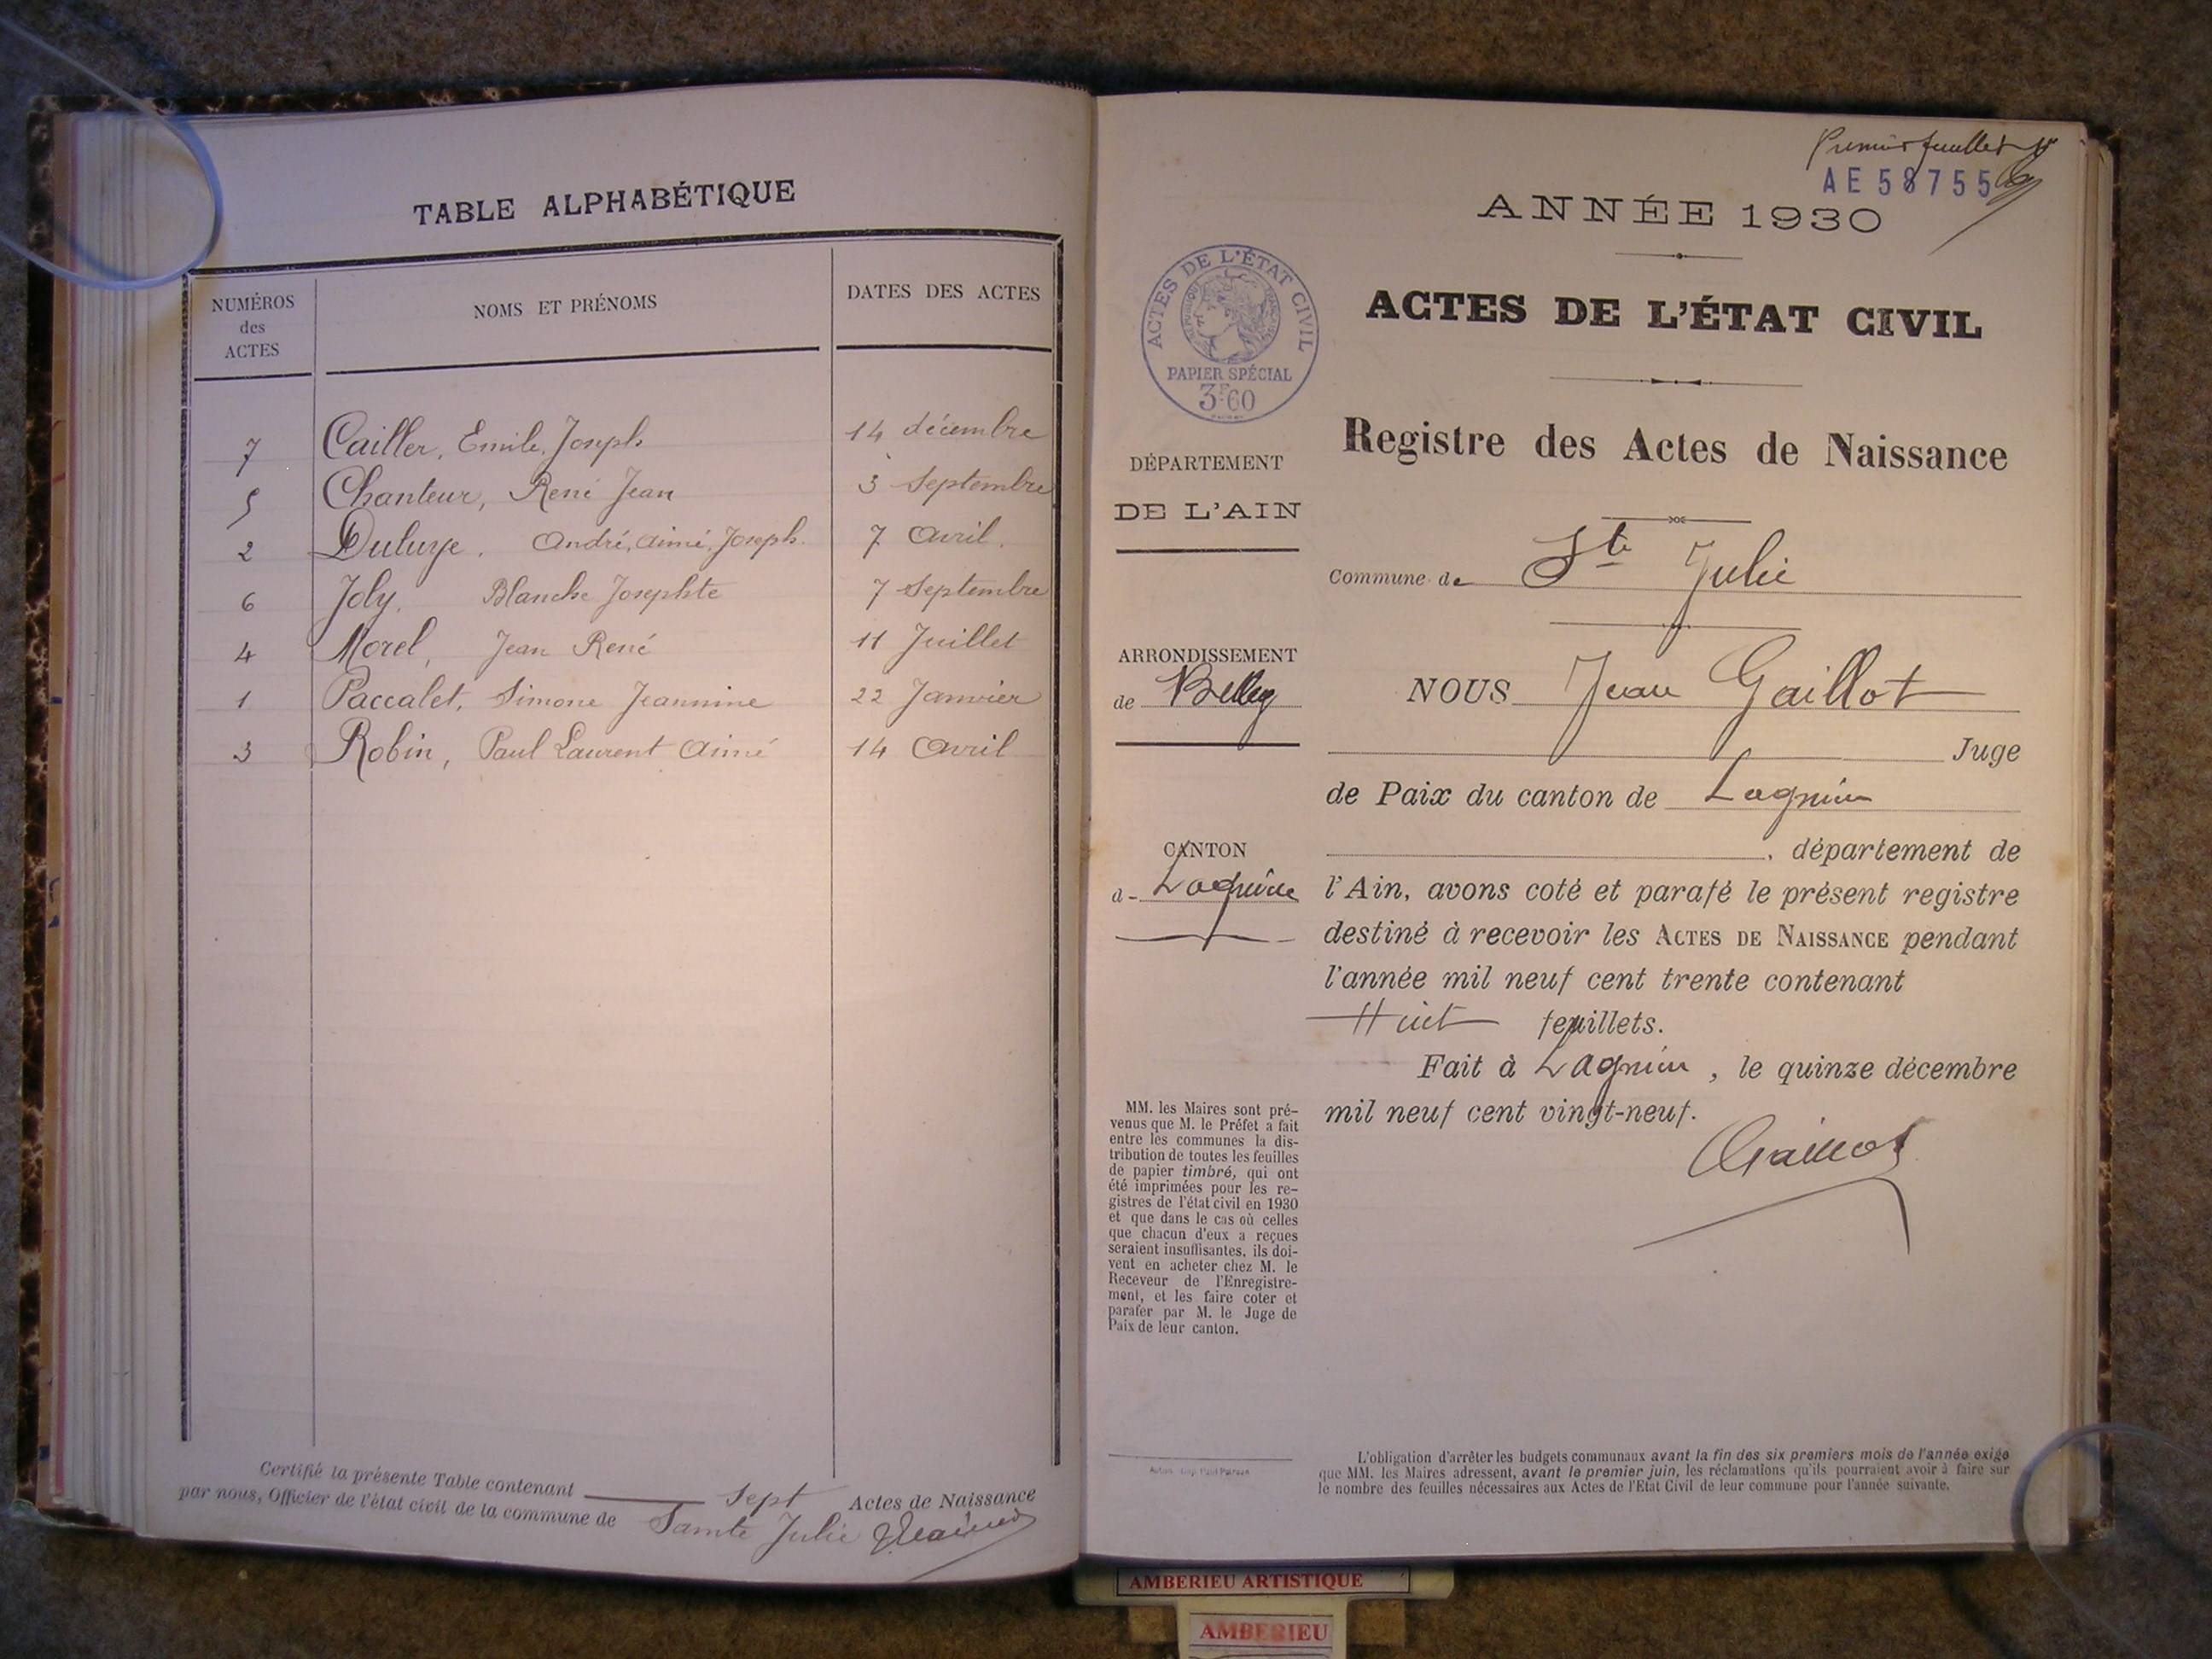 TABLE ALPHABÉTIQUE
NUMÉROS
des
ACTES
NOMS ET PRÉNOMS
DATES DES ACTES
7 Cailler, Emile, Joseph 14 décembre
5 Chanteur, René Jean 3 Septembre
2 André, Aimé, Joseph. 7 Avril.
6 Joly. Blanche Josephte 7 Septembre
4 Morel, Jean René 11 Juillet
1 Paccalet, Simone Jeannine 22 Janvier
3 Robin, Paul Laurent Aimé 14 Avril
Certifié la présente Table contenant sept Actes de Naissance
par nous, Officier de l'état civil de la commune de Sainte Julie
Premier feuillet
AE 58755
ANNÉE 1930
ACTES DE L'ÉTAT CIVIL
PAPIER SPÉCIAL
3F60
ACTES DE L'ÉTAT CIVIL
Registre des Actes de Naissance
DÉPARTEMENT
DE L'AIN
Commune de Ste Julie
ARRONDISSEMENT
de Belley
NOUS Jean Gaillot
Juge
de Paix du canton de Lagnieu
CANTON
d- Lagnieu
, département de
l'Ain, avons coté et parafé le présent registre
destiné à recevoir les ACTES DE NAISSANCE pendant
l'année mil neuf cent trente contenant
Huit feuillets.
Fait à Lagnieu, le quinze décembre
mil neuf cent vingt-neuf.
Gaillot
MM. les Maires sont pré-
venus que M. le Préfet a fait
entre les communes la dis-
tribution de toutes les feuilles
de papier timbré, qui ont
été imprimées pour les re-
gistres de l'état civil en 1930
et que dans le cas où celles
que chacun d'eux a reçues
seraient insuffisantes, ils doi-
vent en acheter chez M. le
Receveur de l'Enregistre-
ment, et les faire coter et
parafer par M. le Juge de
Paix de leur canton.
L'obligation d'arrêter les budgets communaux avant la fin des six premiers mois de l'année exige
que MM. les Maires adressent, avant le premier juin, les réclamations qu'ils pourraient avoir à faire sur
le nombre des feuilles nécessaires aux Actes de l'Etat Civil de leur commune pour l'année suivante.
AMBERIEU ARTISTIQUE
AMBERIEU